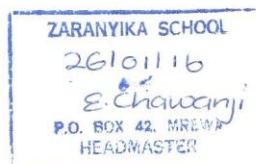 ZARANYIKA SCHOOL
26/01/16
E. Chawanji
P.O. BOX 42, MREWA
HEADMASTER